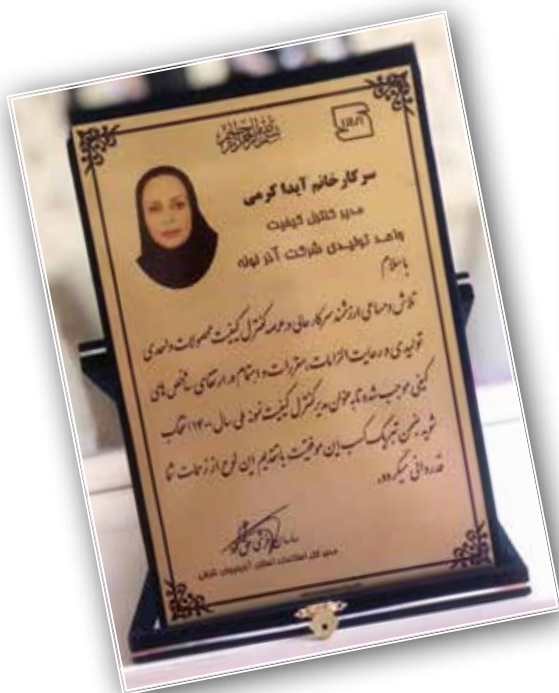 بسم الله الرحمن الرحیم
سرکار خانم آیدا کرمی
مدیر کنترل کیفیت
واحد تولیدی شرکت آذر لوله
با سلام
تلاش و مساعی ارزشمند سرکار عالی در عرصه کنترل کیفیت محصولات واحدی
تولیدی و رعایت الزامات، مقررات و اهتمام در ارتقای شاخص های
کیفی موجب شده تا به عنوان مدیر کنترل کیفیت نمونه ملی سال ۱۴۰۰ انتخاب
شوید. ضمن تبریک کسب این موفقیت با تقدیم این لوح از زحمات شما
قدردانی میگردد.
مدیر کل استاندارد استان آذربایجان شرقی